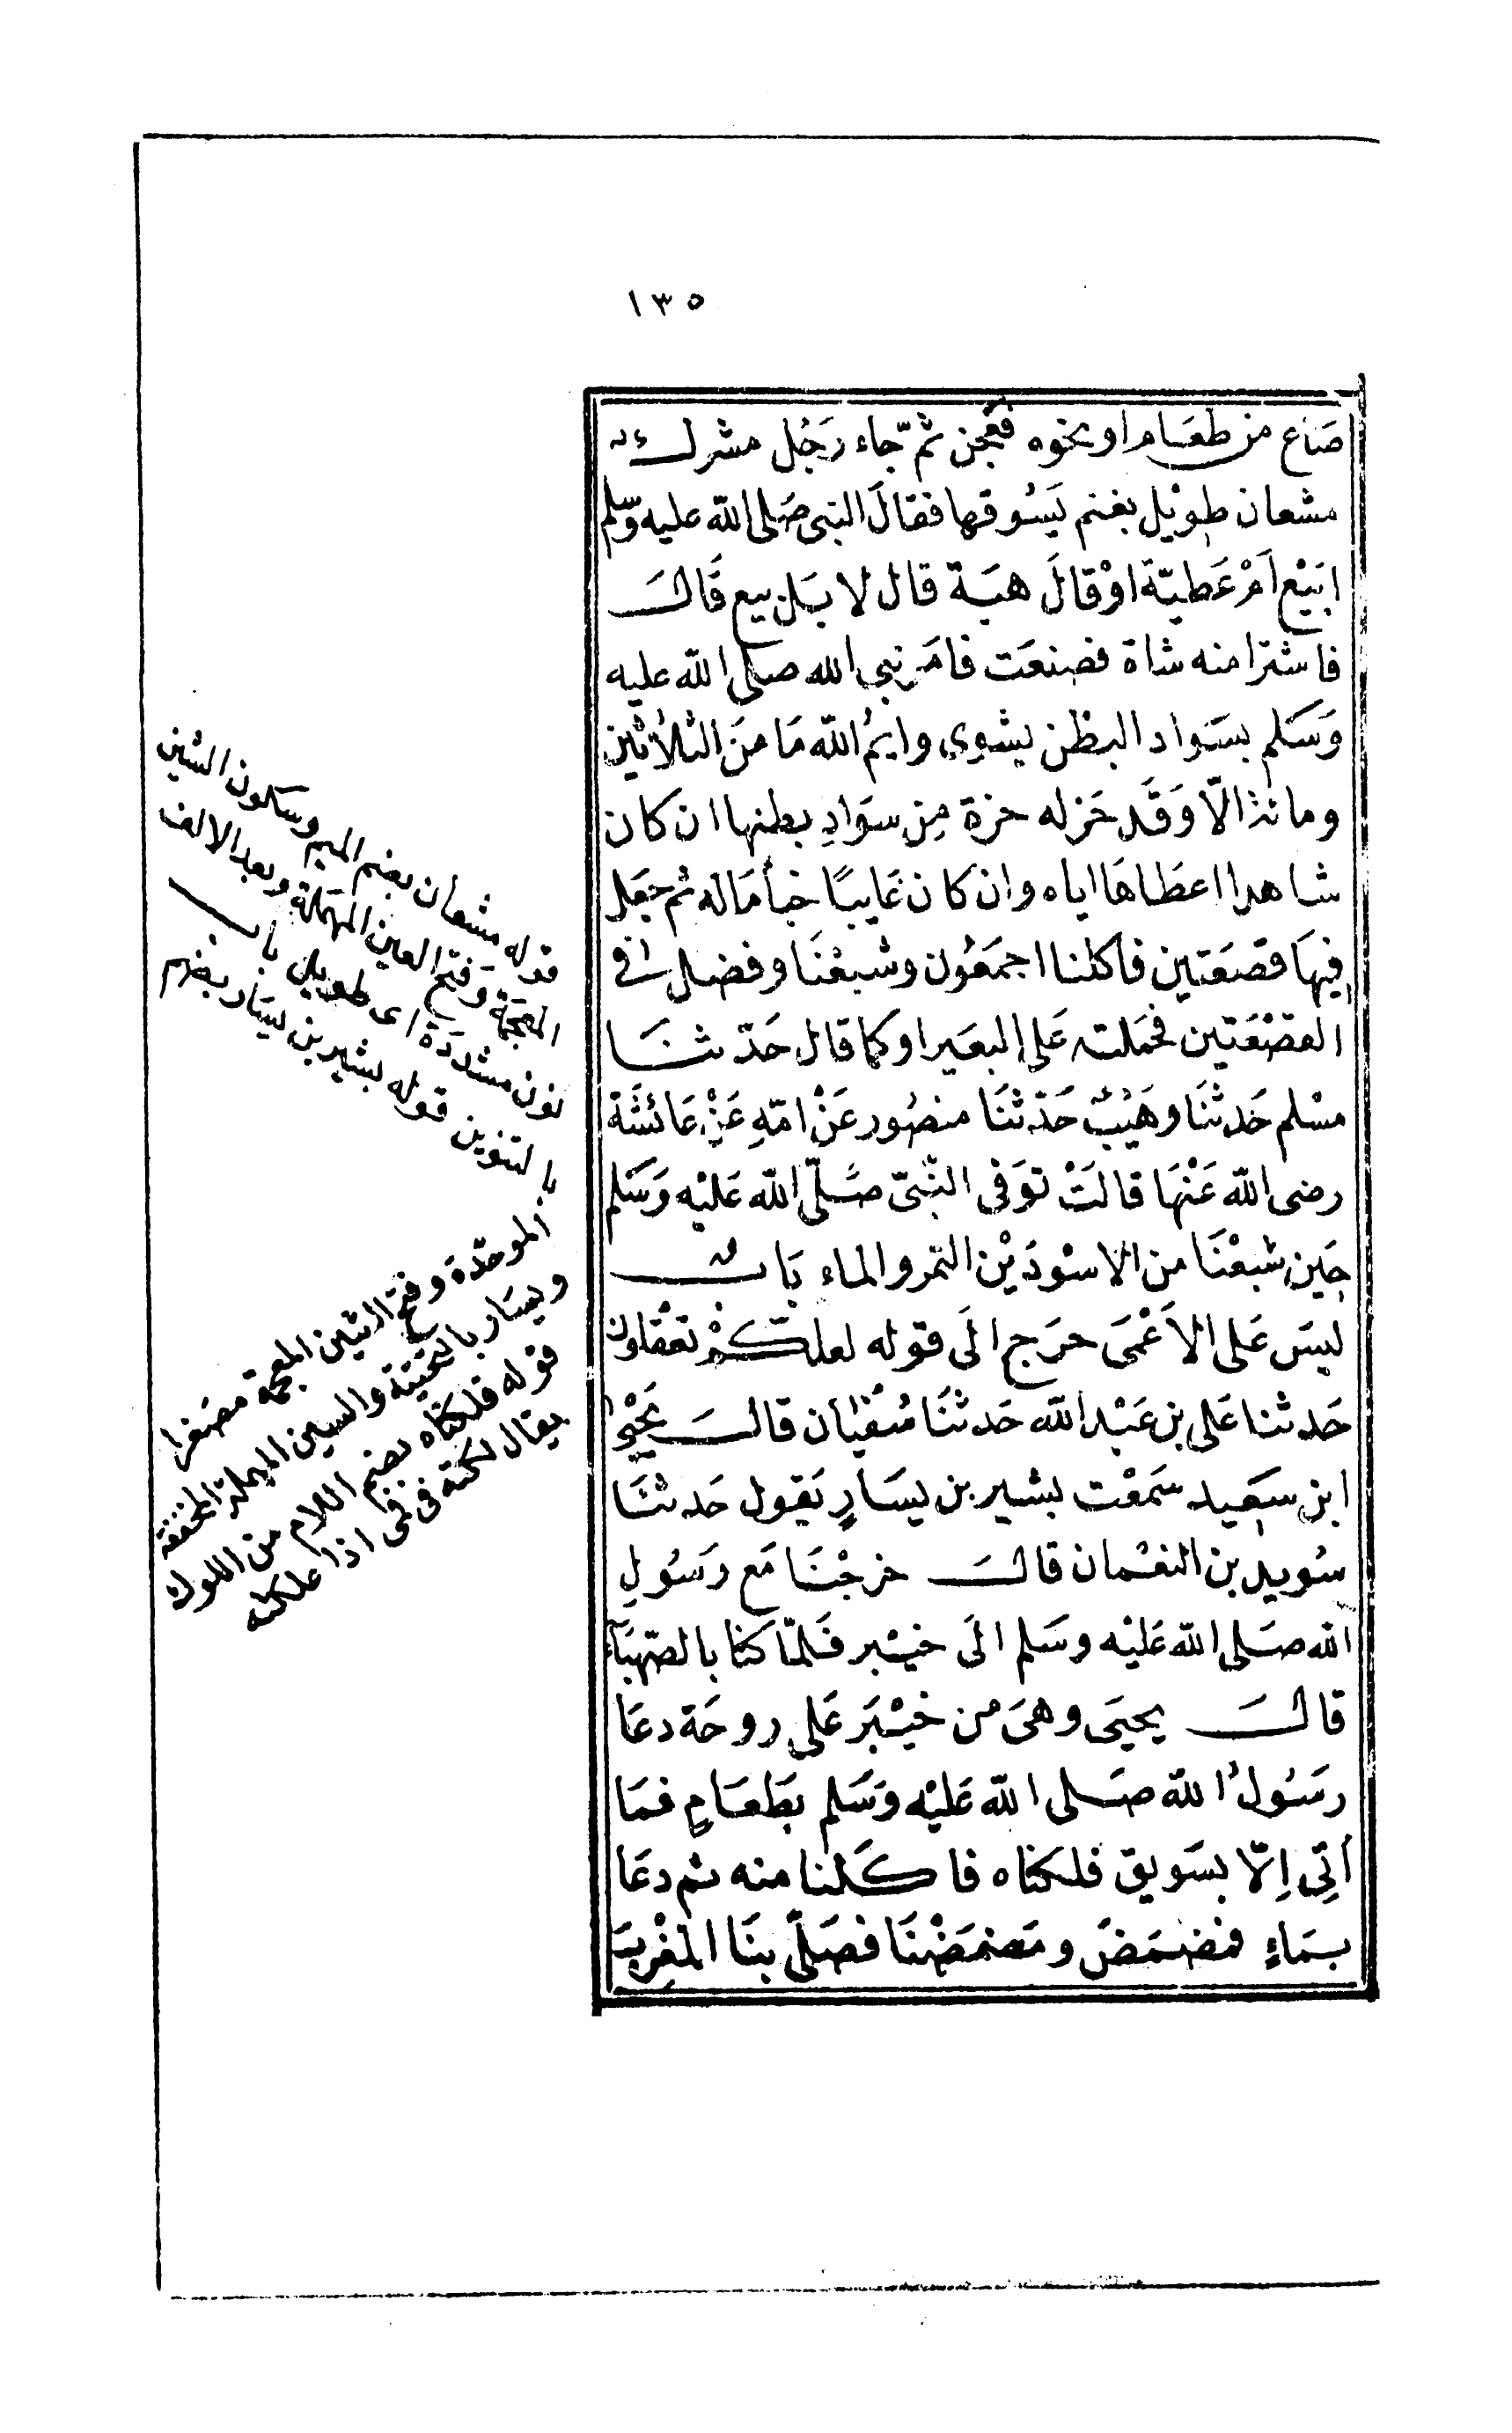 ١٣٥
صَاع من طعَام او نحوه فعجن ثمّ جاء رَجُل مشرك
مشعان طوِيْل بغنم يَسُوقها فقالَ النبى صَلى الله عليه وسّلم
ابَيْع اَمْ عَطيّة اوْ قالَ هبَة قال لا بَل بيع قَالَ
فاشترا منه شاة فصنعَت فامَر نبى الله صلى الله عليه
وَسَلم بسَواد البطن يشوى وايمُ الله مَا منَ الثلاثين
ومائة الّا وَقَد حَز له حزة مِن سوَادِ بطنها ان كان
شاهدا اعطَاهَا اياه وان كان غَايبًا خبأهَا له ثم جعَل
فيهَا قصَعَتين فاكلنا اجمَعُون وشبعْنَا وفضل فى
القصْعَتين فحمَلته عَلى البعَير او كما قال حَدّثنَا
مسْلم حَدثنَا وهَيْبٌ حَدّثنَا منصُور عَنْ امّهِ عَنْ عَائشَة
رضى الله عَنْهَا قالَتْ توَفى النّبىّ صَلّى الله عَليْه وَسَلم
حِين شبعْنَا من الاسْودَيْن التمر والماء بَاب
ليسَ عَلى الاَعْمَى حرَج الَى قوله لعلّكمْ تعْقلون
حَدثنا عَلى بن عَبْد الله حَدثنَا سُفْيَان قالَ يَحْيٰى
ابن سَعِيد سَمعْت بشير بن يسَارٍ يَقول حَدثنَا
سُويد بن النعْمان قالَ خرجْنَا مَع رسَُولِ
الله صَلى الله عَليْه وسَلم الَى خيْبر فَلمّا كنا بالصّهبَآء
قالَ يحيَى وهىَ من خيْبَر عَلى روحَة دعَا
رسَُولُ الله صَلى الله عَليْه وَسَلم بطَعَامٍ فمَا
اُتِى اِلّا بسَويق فلكناه فاكَلنا منه ثم دعَا
بمَاءٍ فمضمَضَ ومَضمَضْنَا فصَلّى بنَا المغْربَ
قوله مشعان بضم الميم وسكون الشين
المعجَمة وَفتح العين المهمَلة وبعد الالف
نون مشددَة اى طويل باب
بالتنوين قوله بشير بن يسَار بضم
الموحّدة وفتح الشين المعجمة مصَغرا
ويسَار بالتحتية والسين المهملة المخففة
قوله فلكناه بضم اللام من اللوك
يقال لكته فى فمى اذا علكته